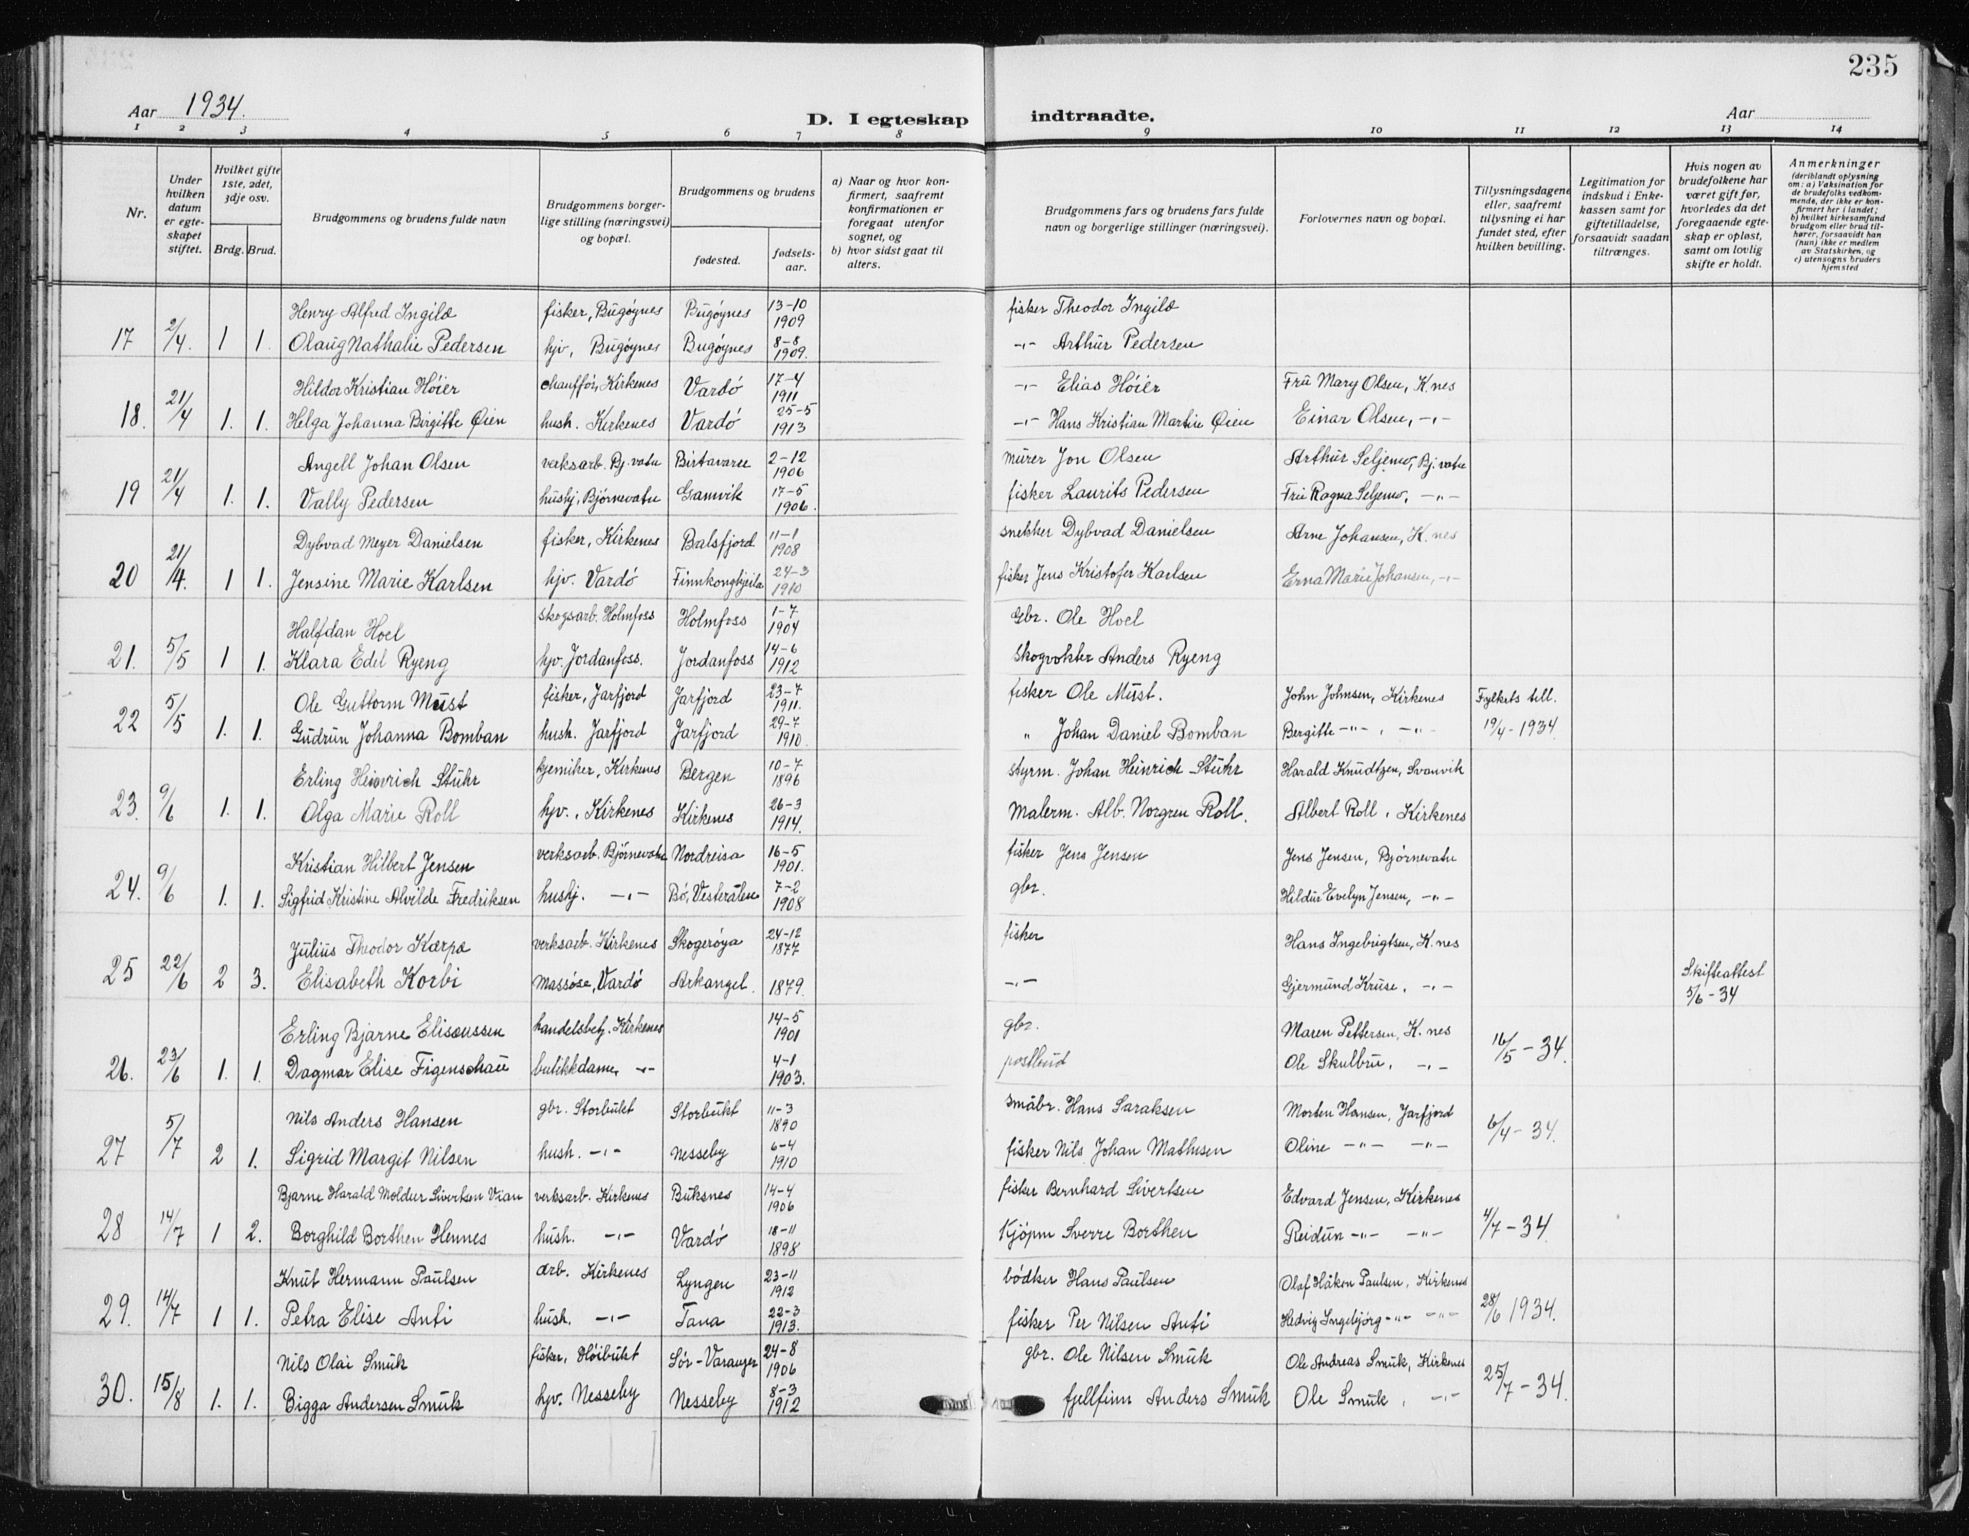 235
Aar 1934.
D. I egteskap indtraadte.
Aar
1 2 3 4 5 6 7 8 9 10 11 12 13 14
Nr.
Under hvilken datum er egteskapet stiftet.
Hvilket gifte 1ste, 2det, 3dje osv.
Brdg. Brud.
Brudgommens og brudens fulde navn
Brudgommens borgerlige stilling (næringsvei) og bopæl.
Brudgommens og brudens
fødested.
fødselsaar.
a) Naar og hvor konfirmert, saafremt konfirmationen er foregaat utenfor sognet, og
b) hvor sidst gaat til alters.
Brudgommens fars og brudens fars fulde navn og borgerlige stillinger (næringsvei).
Forlovernes navn og bopæl.
Tillysningsdagene eller, saafremt tillysning ei har fundet sted, efter hvilken bevilling.
Legitimation for indskud i Enkekassen samt for giftetilladelse, forsaavidt saadan tiltrænges.
Hvis nogen av brudefolkene har været gift før, hvorledes da det foregaaende egteskap er opløst, samt om lovlig skifte er holdt.
Anmerkninger (deriblandt oplysning om: a) Vaksination for de brudefolks vedkommende, der ikke er konfirmert her i landet; b) hvilket kirkesamfund brudgom eller brud tilhører, forsaavidt han (hun) ikke er medlem av Statskirken, og c) utensogns bruders hjemsted
Henry Alfred Ingilæ fisker, Bugøynes Bugøynes 13-10 1909 fisker Theodor Ingilæ
17 2/4. 1 1. Olaug Nathalie Pedersen hjv, Bugøynes Bugøynes 8-8 1909. -"- Arthur Pedersen
Hildor Kristian Høier chauffør, Kirkenes Vardø 17-4 1911 -"- Elias Høier Fru Mary Olsen, K.nes
18. 21/4 1. 1. Helga Johanna Birgitte Øien hush. Kirkenes Vardø 25-5 1913 -"- Hans Kristian Martin Øien Einar Olsen, -"-
Angell Johan Olsen verksarb. Bj.vatn Birtavarre 2-12 1906 murer Jon Olsen Arthur Seljemo, Bj.vatn
19 21/4 1. 1. Vally Pedersen hushj, Bjørnevatn Gamvik 17-5 1906. fisker Laurits Pedersen Fru Ragna Seljemo, -"-
Dybvad Meyer Danielsen fisker, Kirkenes Balsfjord 11-1 1908 snekker Dybvad Danielsen Arne Johansen, K.nes
20 21/4. 1 1. Jensine Marie Karlsen hjv. Vardø Finnkongkjeila 24-3 1910 fisker Jens Kristofer Karlsen Erna Marie Johansen, -"-
Halfdan Hoel skogsarb. Holmfoss Holmfoss 1-7 1904 Gbr. Ole Hoel
21. 5/5 1 1. Klara Edel Ryeng hjv. Jordanfoss. Jordanfoss 14-6 1912 skogvokter Anders Ryeng
Ole Guttorm Must fisker, Jarfjord Jarfjord 23-7 1911. fisker Ole Must. John Johnsen, Kirkenes Fylkets till.
22 5/5 1. 1. Gudrun Johanna Bomban hush. Jarfjord Jarfjord 29-7 1910. " Johan Daniel Bomban Bergitte -"- , -"- 19/4-1934.
Erling Heinrich Stuhr kjemiker, Kirkenes Bergen 10-7 1896 styrm. Johan Heinrich Stuhr Harald Knudtzen, Svanvik
23. 9/6 1. 1. Olga Marie Roll hjv., Kirkenes Kirkenes 26-3 1914. Malerm. Alb. Norgren Roll. Albert Roll, Kirkenes
Kristian Hilbert Jensen verksarb. Bjørnevatn Nordreisa 16-5 1901. fisker Jens Jensen Jens Jensen, Bjørnevatn
24. 9/6 1. 1. Sigfrid Kristine Alvilde Fredriksen hushj. -"- Bø, Vesterålen 7-2 1908 gbr. Hildur Evelyn Jensen, -"-
Julius Theodor Karpæ verksarb. Kirkenes Skogerøya 24-12 1877 fisker Hans Ingebrigtsen, K.nes
25 22/6 2 3. Elisabeth Korbi massøse, Vardø Arkangel. 1879. -"- Gjermund Kruse, -"- Skifteattest 5/6-34
Erling Bjarne Elisæussen handelsbetj. Kirkenes 14-5 1901 gbr. Maren Pettersen, K.nes
26. 23/6 1. 1. Dagmar Elise Figenschau butikkdame, -"- 4-1 1903. postbud Ole Skulbru, -"- 16/5-34.
Nils Anders Hansen gbr. Storbukt Storbukt 11-3 1890 småbr. Hans Saraksen Morten Hansen, Jarfjord
27 5/7 2 1. Sigrid Margit Nilsen hush. -"- Nesseby 6-4 1910 fisker Nils Johan Mathisen Oline -"- -"- 6/4-34.
Bjarne Harald Moldur Sivertsen Vian verksarb. Kirkenes Buksnes 14-4 1906 fisker Bernhard Sivertsen Edvard Jensen, Kirkenes
28 14/7 1 2. Borghild Borthen Hennes hush. -"- Vardø 18-11 1898 Kjøpm Sverre Borthen Reidun -"- -"- 4/7-34
Knut Hermann Paulsen arb. Kirkenes Lyngen 23-11 1912 bødker Hans Paulsen Olaf Håkon Paulsen, Kirkenes
29. 14/7 1 1. Petra Elise Anti hush. -"- Tana 22-3 1913. fisker Per Nilsen Anti Hedvig Ingebjørg -"- -"- 28/6 1934.
Nils Olai Smuk fisker, Høibukt Sør-Varanger 24-8 1906 gbr. Ole Nilsen Smuk Ole Andreas Smuk, Kirkenes
30. 15/8 1. 1. Bigga Andersen Smuk hjv. Nesseby Nesseby 8-3 1912 fjellfinn Anders Smuk Ole Smuk, -"- 25/7-34.